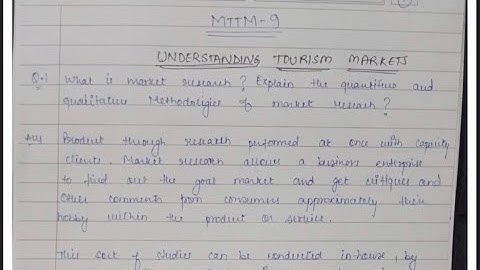 MTTM-9
UNDERSTANDING TOURISM MARKETS
Q.1 What is market research? Explain the quantitive and
qualitative Methodologies of market research?
Ans Product through research performed at once with capacity
clients. Market research allows a business enterprise
to find out the goal market and get critiques and
other comments from consumers approximately their
hobby within the product or service.
This sort of studies can be conducted in-house, by